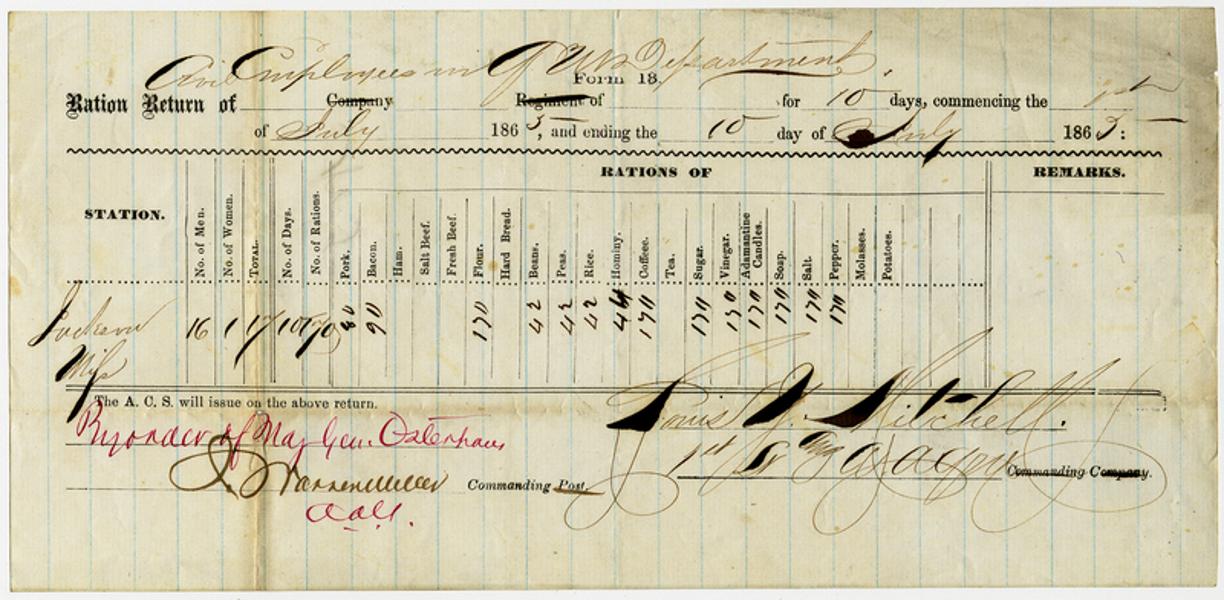 Civil Employees in Q M Department.
Form 18.
Ration Return of Company Regiment of for 10 days, commencing the 1st
of July 1865, and ending the 10 day of July 1865:
RATIONS OF
REMARKS.
STATION.
No. of Men.
No. of Women.
TOTAL.
No. of Days.
No. of Rations.
Pork.
Bacon.
Ham.
Salt Beef.
Fresh Beef.
Flour.
Hard Bread.
Beans.
Peas.
Rice.
Hominy.
Coffeee.
Tea.
Sugar.
Vinegar.
Adamantine Candles.
Soap.
Salt.
Pepper.
Molasses.
Potatoes.
Jackson 16 1 17 10 170 80 90 170 42 42 42 44 170 170 170 170 170 170 170
Miss
The A. C. S. will issue on the above return.
By order of Maj Gen. Osterhaus
Louis Mitchell.
Warren Miller Commanding Post.
1st Lt Commanding Company.
A.A.G.